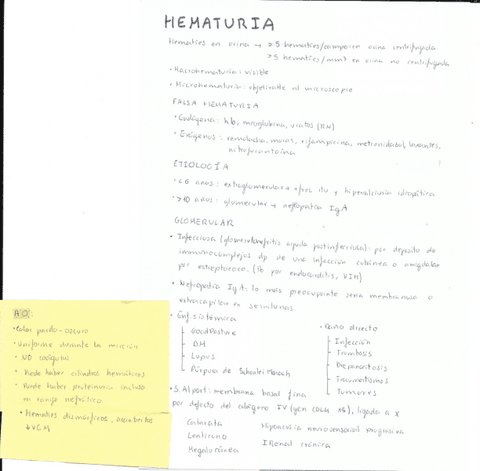 HEMATURIA
Hematíes en orina → >5 hematíes/campo en orina centrifugada
>5 hematíes/mm³ en orina no centrifugada
• Macrohematuria: visible
• Microhematuria: objetivable al microscopio
FALSA HEMATURIA
• Endógena: hb, mioglobina, uratos (RN)
• Exógenos: remolacha, moras, rifampicina, metronidazol, laxantes,
nitrofurantoína
ETIOLOGÍA
• <6 años: extraglomerular → efres itu y hipercalciuria idiopática
• >10 años: glomerular → nefropatía IgA
GLOMERULAR
• Infecciosa (glomerulonefritis aguda postinfecciosa): por depósito de
inmunocomplejos dp de una infección cutánea o amigdalar
por estreptococo. (Tb por endocarditis, VIH)
• Nefropatía IgA: lo más preocupante sería membranosa o
extracapilar en semilunas
• Enf. sistémica
GoodPasture
DM
Lupus
Púrpura de Schönlein Henoch
• Daño directo
Infección
Trombosis
Traumatismos
Tumores
• S. Alport: membrana basal fina
por defecto del colágeno IV (gen COL4 A5), ligado a X
Catarata
Lenticono
Megalocórnea
Hipoacusia neurosensorial progresiva
IRenal crónica
• Color pardo-oscuro
• Uniforme durante la micción
• NO coágulos
• Puede haber cilindros hemáticos
• Puede haber proteinuria incluso
en rango nefrótico
• Hematíes dismórficos, acantocitos
↓VCM